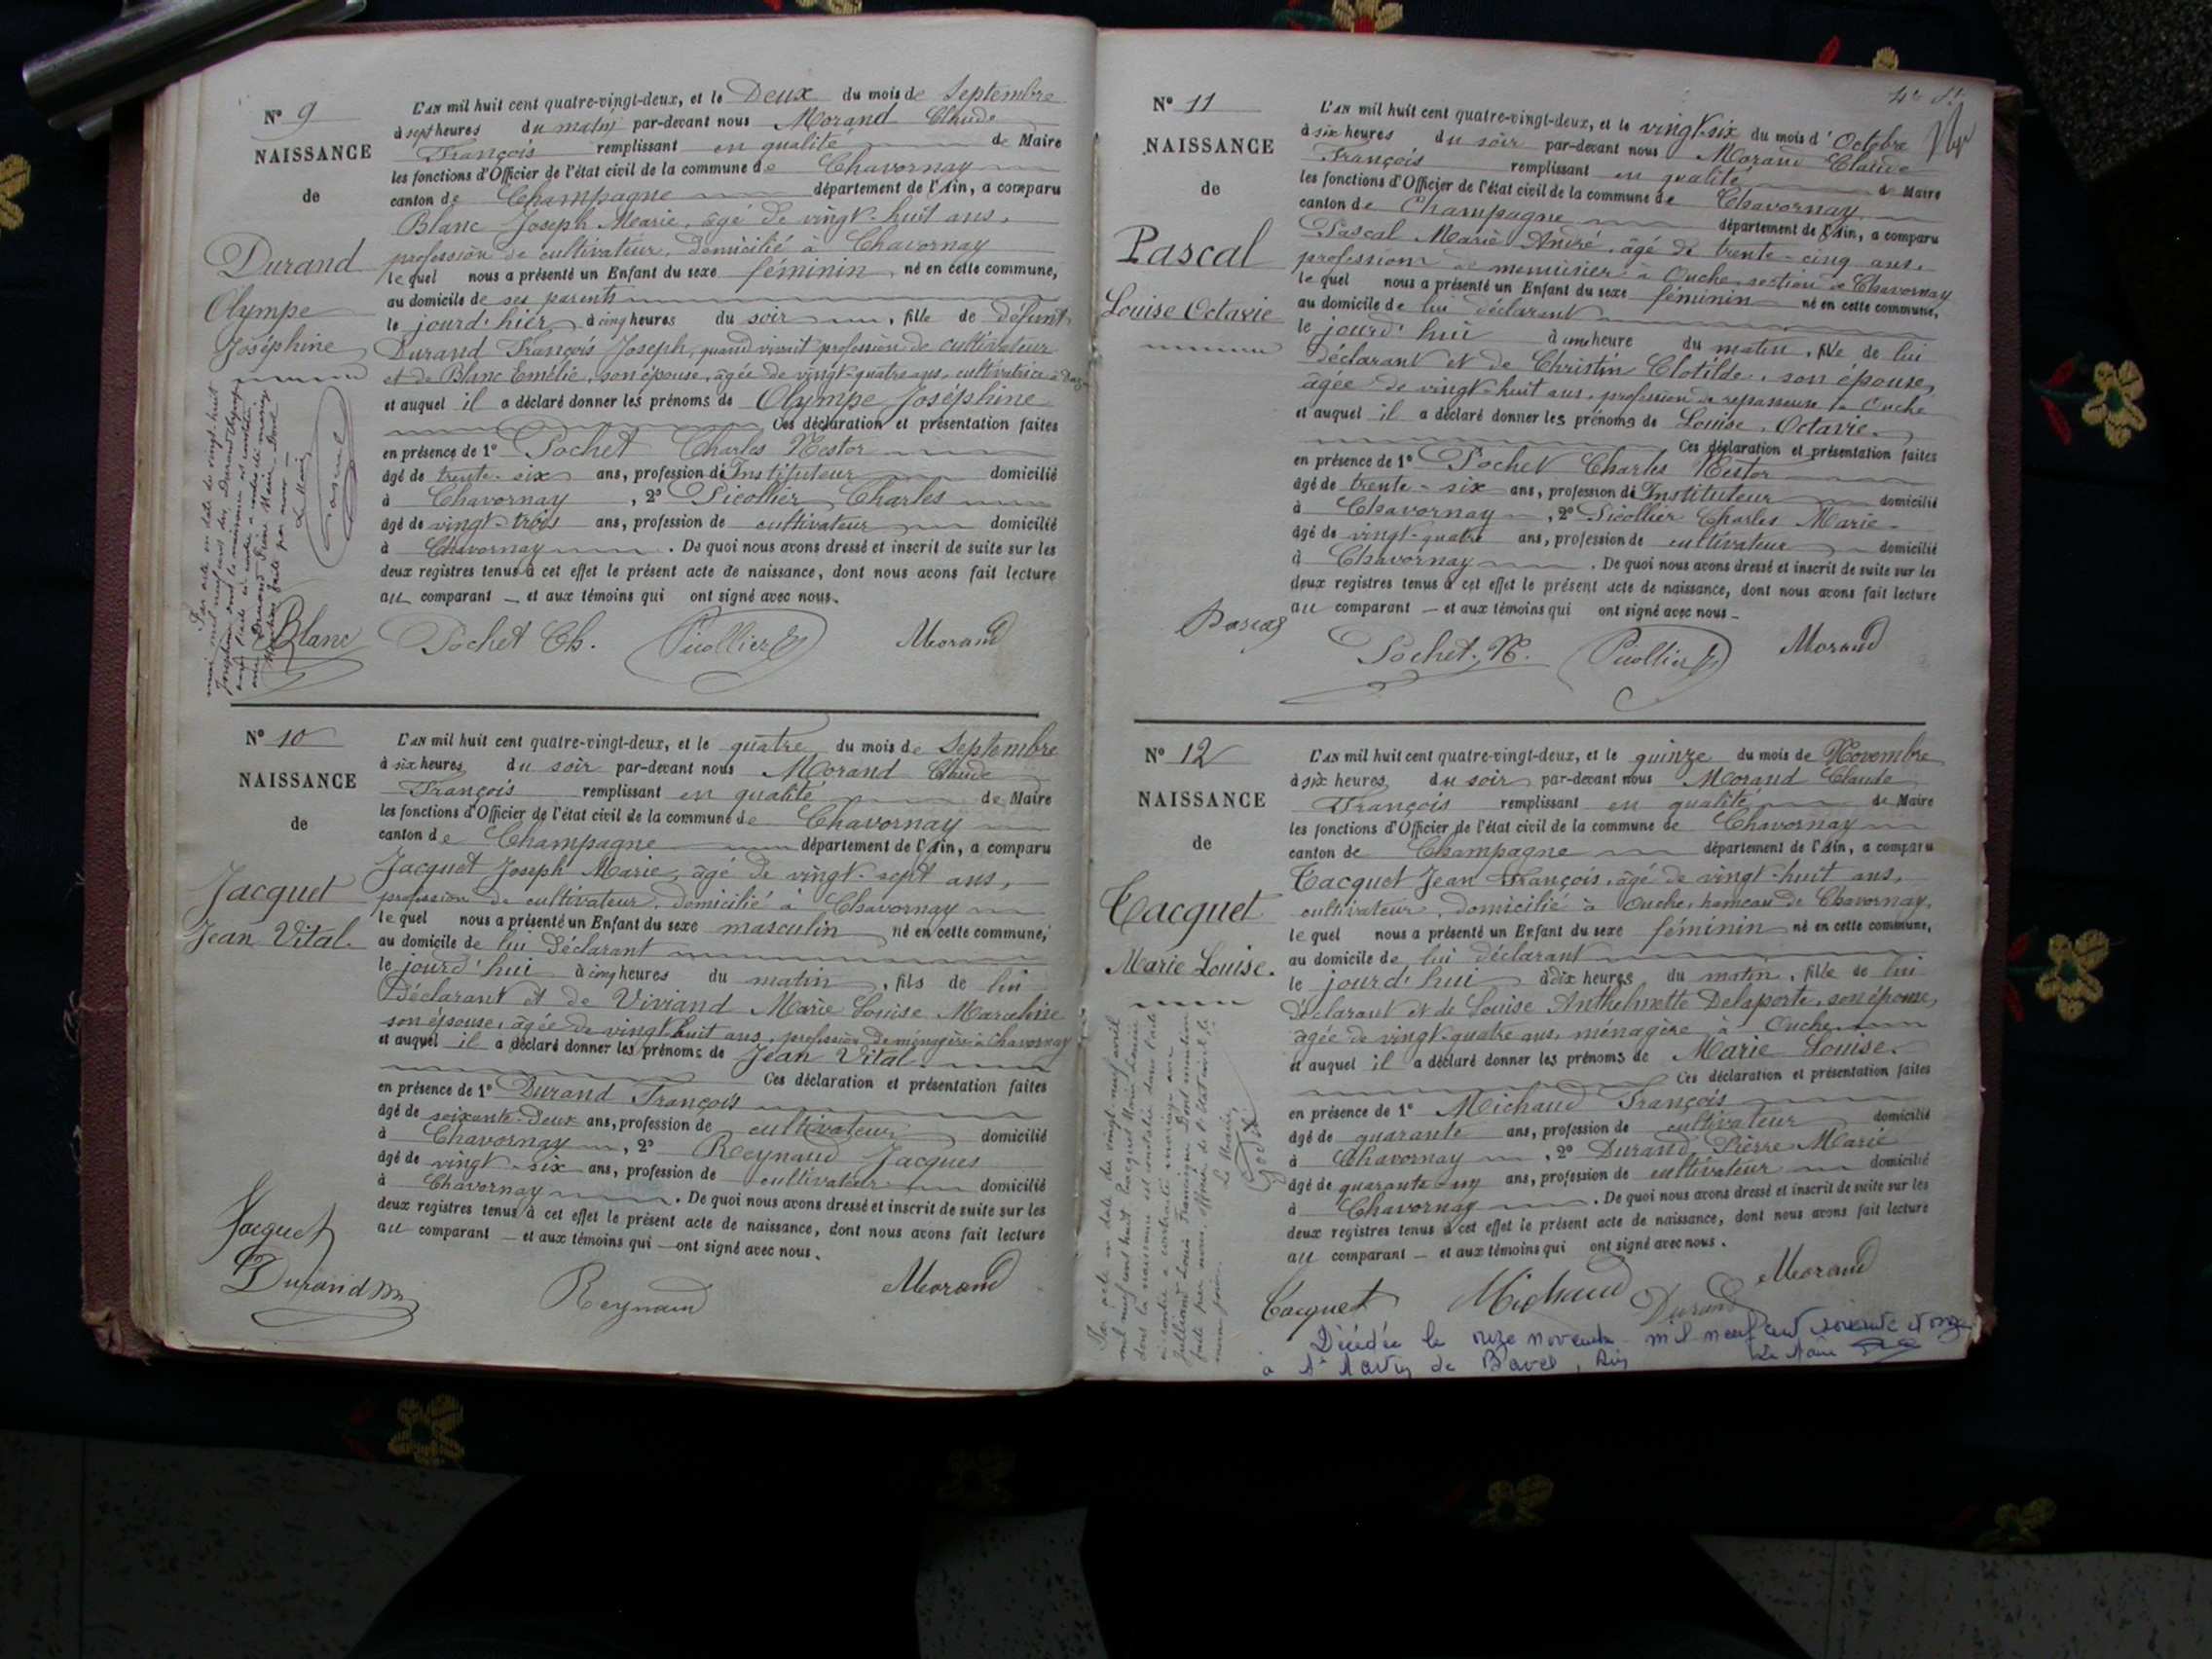 Nº 9
NAISSANCE
de
Durand
Olympe
Joséphine
L'AN mil huit cent quatre-vingt-deux, et le Deux du mois de Septembre
à sept heures du matin par-devant nous Morand Claude
François remplissant en qualité de Maire
les fonctions d'Officier de l'état civil de la commune de Chavornay
canton de Champagne département de l'Ain, a comparu
Blanc Joseph Marie, âgé de vingt-huit ans,
profession de cultivateur, domicilié à Chavornay
lequel nous a présenté un Enfant du sexe féminin, né en cette commune,
au domicile de ses parents
le jourd'hier à cinq heures du soir, fille de défunt
Durand François Joseph, quand vivait profession de cultivateur
et de Blanc Emélie, son épouse, âgée de vingt-quatre ans, cultivatrice à
et auquel il a déclaré donner les prénoms de Olympe Joséphine
Ces déclaration et présentation faites
en présence de 1º Pochet Charles Nestor
âgé de trente-six ans, profession d'Instituteur domicilié
à Chavornay, 2º Picollier Charles
âgé de vingt-trois ans, profession de cultivateur domicilié
à Chavornay. De quoi nous avons dressé et inscrit de suite sur les
deux registres tenus à cet effet le présent acte de naissance, dont nous avons fait lecture
au comparant et aux témoins qui ont signé avec nous.
Blanc Pochet Ch. Picollier Morand
Nº 10
NAISSANCE
de
Jacquet
Jean Vital.
L'AN mil huit cent quatre-vingt-deux, et le quatre du mois de Septembre
à six heures du soir par-devant nous Morand Claude
François remplissant en qualité de Maire
les fonctions d'Officier de l'état civil de la commune de Chavornay
canton de Champagne département de l'Ain, a comparu
Jacquet Joseph Marie, âgé de vingt-sept ans,
profession de cultivateur, domicilié à Chavornay
lequel nous a présenté un Enfant du sexe masculin né en cette commune,
au domicile de lui déclarant
le jourd'hui à cinq heures du matin, fils de lui
déclarant et de Viviand Marie Louise Marceline
son épouse, âgée de vingt-huit ans, profession de ménagère à Chavornay
et auquel il a déclaré donner les prénoms de Jean Vital.
Ces déclaration et présentation faites
en présence de 1º Durand François
âgé de soixante-deux ans, profession de cultivateur domicilié
à Chavornay, 2º Reynaud Jacques
âgé de vingt-six ans, profession de cultivateur domicilié
à Chavornay. De quoi nous avons dressé et inscrit de suite sur les
deux registres tenus à cet effet le présent acte de naissance, dont nous avons fait lecture
au comparant et aux témoins qui ont signé avec nous.
Jacquet
Durand Reynaud Morand
Nº 11
NAISSANCE
de
Pascal
Louise Octavie
L'AN mil huit cent quatre-vingt-deux, et le vingt-six du mois d'Octobre
à six heures du soir par-devant nous Morand Claude
François remplissant en qualité de Maire
les fonctions d'Officier de l'état civil de la commune de Chavornay
canton de Champagne département de l'Ain, a comparu
Pascal Marie André, âgé de trente-cinq ans,
profession de menuisier à Ouche, section de Chavornay
lequel nous a présenté un Enfant du sexe féminin né en cette commune,
au domicile de lui déclarant
le jourd'hui à une heure du matin, fille de lui
déclarant et de Christin Clotilde, son épouse,
âgée de vingt-huit ans, profession de repasseuse à Ouche
et auquel il a déclaré donner les prénoms de Louise Octavie.
Ces déclaration et présentation faites
en présence de 1º Pochet Charles Nestor
âgé de trente-six ans, profession d'Instituteur domicilié
à Chavornay, 2º Picollier Charles Marie
âgé de vingt-quatre ans, profession de cultivateur domicilié
à Chavornay. De quoi nous avons dressé et inscrit de suite sur les
deux registres tenus à cet effet le présent acte de naissance, dont nous avons fait lecture
au comparant et aux témoins qui ont signé avec nous
Pascal Pochet. N. Picollier Morand
Nº 12
NAISSANCE
de
Tacquet
Marie Louise.
L'AN mil huit cent quatre-vingt-deux, et le quinze du mois de Novembre
à six heures du soir par-devant nous Morand Claude
François remplissant en qualité de Maire
les fonctions d'Officier de l'état civil de la commune de Chavornay
canton de Champagne département de l'Ain, a comparu
Tacquet Jean François, âgé de vingt-huit ans,
cultivateur, domicilié à Ouche, hameau de Chavornay,
lequel nous a présenté un Enfant du sexe féminin né en cette commune,
au domicile de lui déclarant
le jourd'hui à dix heures du matin, fille de lui
déclarant et de Louise Anthelmette Delaporte, son épouse,
âgée de vingt-quatre ans, ménagère à Ouche
et auquel il a déclaré donner les prénoms de Marie Louise.
Ces déclaration et présentation faites
en présence de 1º Michaud François
âgé de quarante ans, profession de cultivateur domicilié
à Chavornay, 2º Durand Pierre Marie
âgé de quarante-un ans, profession de cultivateur domicilié
à Chavornay. De quoi nous avons dressé et inscrit de suite sur les
deux registres tenus à cet effet le présent acte de naissance, dont nous avons fait lecture
au comparant et aux témoins qui ont signé avec nous.
Tacquet Michaud Durand Morand
Décédée le onze novembre mil neuf cent soixante et onze
à St Martin de Bavel, Ain Le Maire